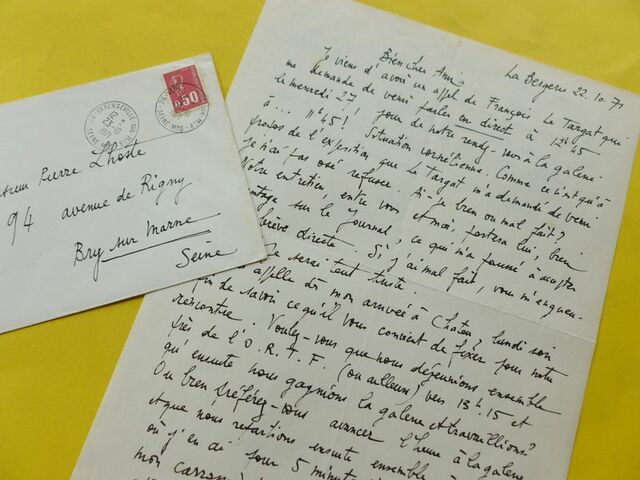 0.50
VARENGEVILLE
Monsieur Pierre Lhoste
94 avenue de Rigny
Bry sur Marne
Seine
La Bergerie 22.10.71
Bien cher Ami
Je viens d'avoir un appel de François Le Targat qui
me demande de venir parler en direct à 12h45
le mercredi 27! jour de notre rendez-vous à la galerie
à... 11h45! Situation cornélienne. Comme ce n'est qu'à
propos de l'exposition que Le Targat m'a demandé de venir
je n'ai pas osé refuser. Ai-je bien ou mal fait?
Notre entretien, entre vous et moi, portera lui, bien
sur le journal, ce qui m'a poussé à accepter
brève directe. Si j'ai mal fait, vous m'engueu-
serai tout triste.
appelle dès mon arrivée à Chatou? lundi soir
fin de savoir ce qu'il vous convient de fixer pour notre
rencontre. Voulez-vous que nous déjeunions ensemble
près de l'O.R.T.F. (ou ailleurs) vers 13h.15 et
qu'ensuite nous gagnions la galerie et travaillions?
Ou bien préférez-vous avancer l'heure à la galerie
et que nous repartions ensuite ensemble
où j'en ai pour 5 minutes
mon